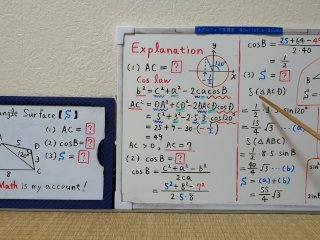 angle Surface [S]
(1) AC = ?
(2) cosB = ?
(3) S = ?
5
120°
3
D
8
Math is my account!
Explanation
(1) AC = ?
Cos law
b² = c² + a² - 2ca cosB
AC² = DA² + CD² - 2DA·CD cosD
= 5² + 3² - 2·5·3·cos120°
= 25 + 9 - 30·(-1/2)
= 49
AC > 0, AC = 7
(2) cosB = ?
cosB = (c² + a² - b²)/2ca
= (5² + 8² - 7²)/2·5·8
y
120°
x
-1/2
cosB = (25 + 64 - 49
2·40
= 1/2
(3) S = ?
S(△ACD)
= 1/2·5·3·sin120°
= 15/4 √3 ...(a)
S(△ABC)
= 1/2·8·5·sinB
= 40/4 √3 ...(b)
S = (a) + (b)
= 55/4 √3
B
8
sin
sin